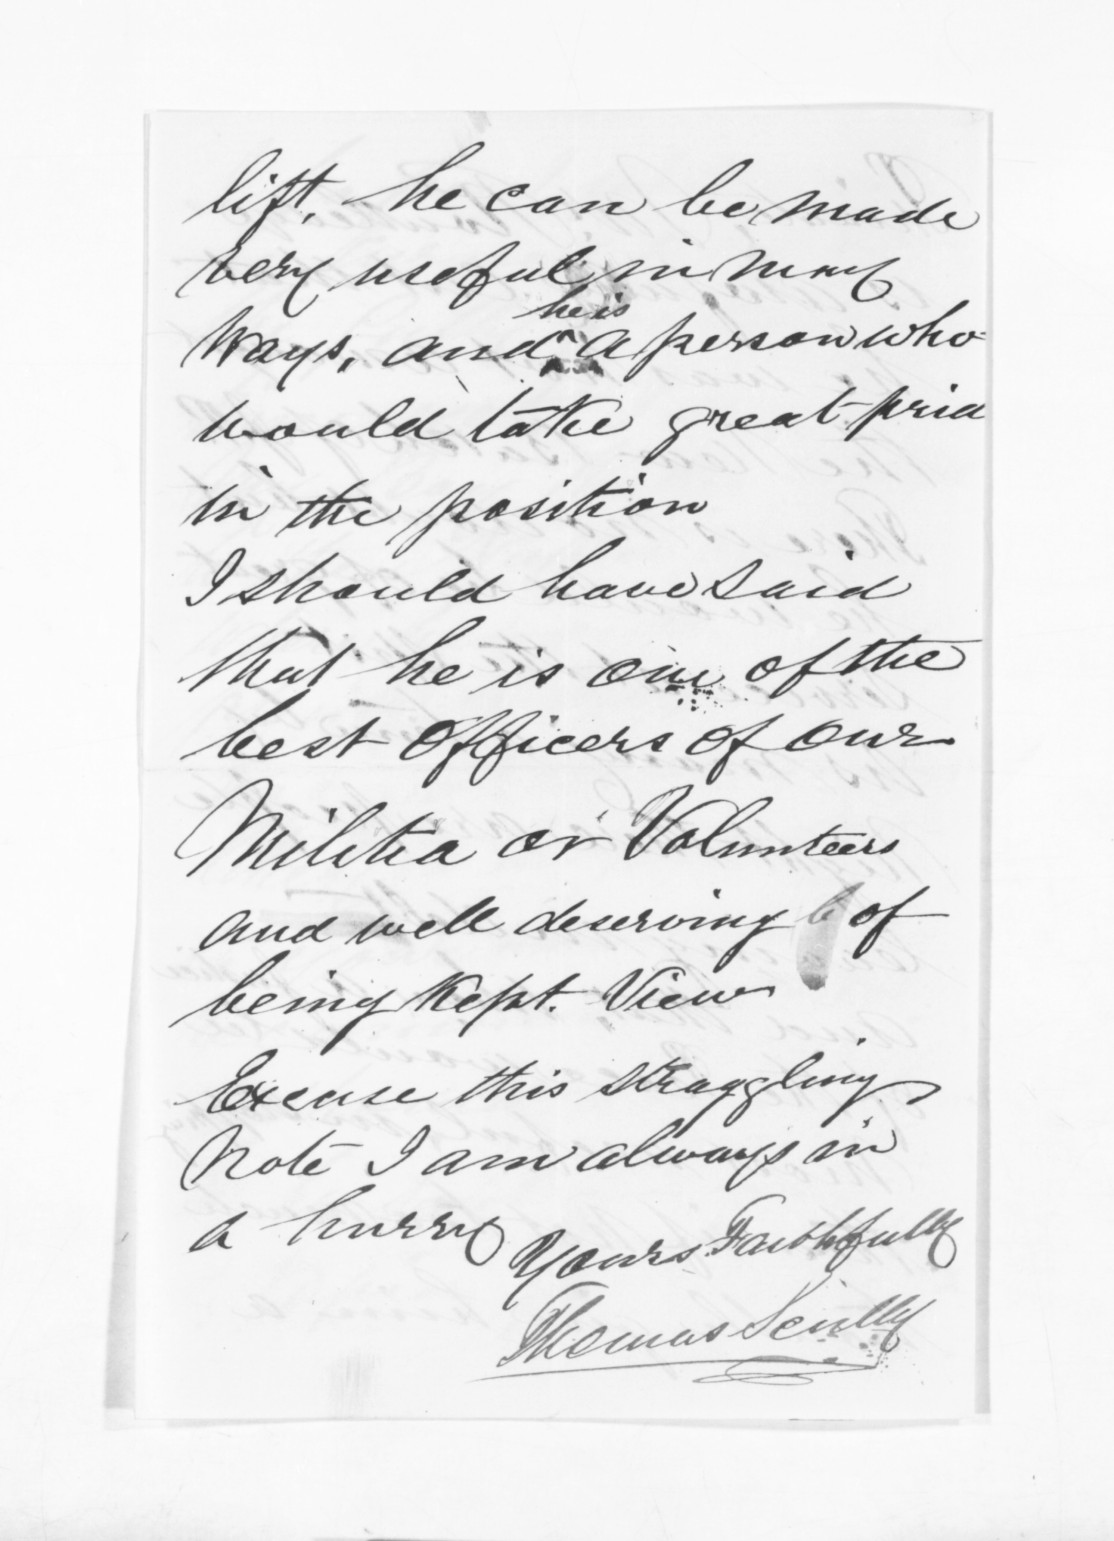 lift, he can be made
very useful in many
ways, and he is a person who
would take great prid
in the position
I should have said
that he is one of the
best Officers of our
Militia or Volunteers
and well deserving of
being Kept. View
Excuse this straggling
note I am always in
a hurry
Yours Faithfully
Thomas Scully